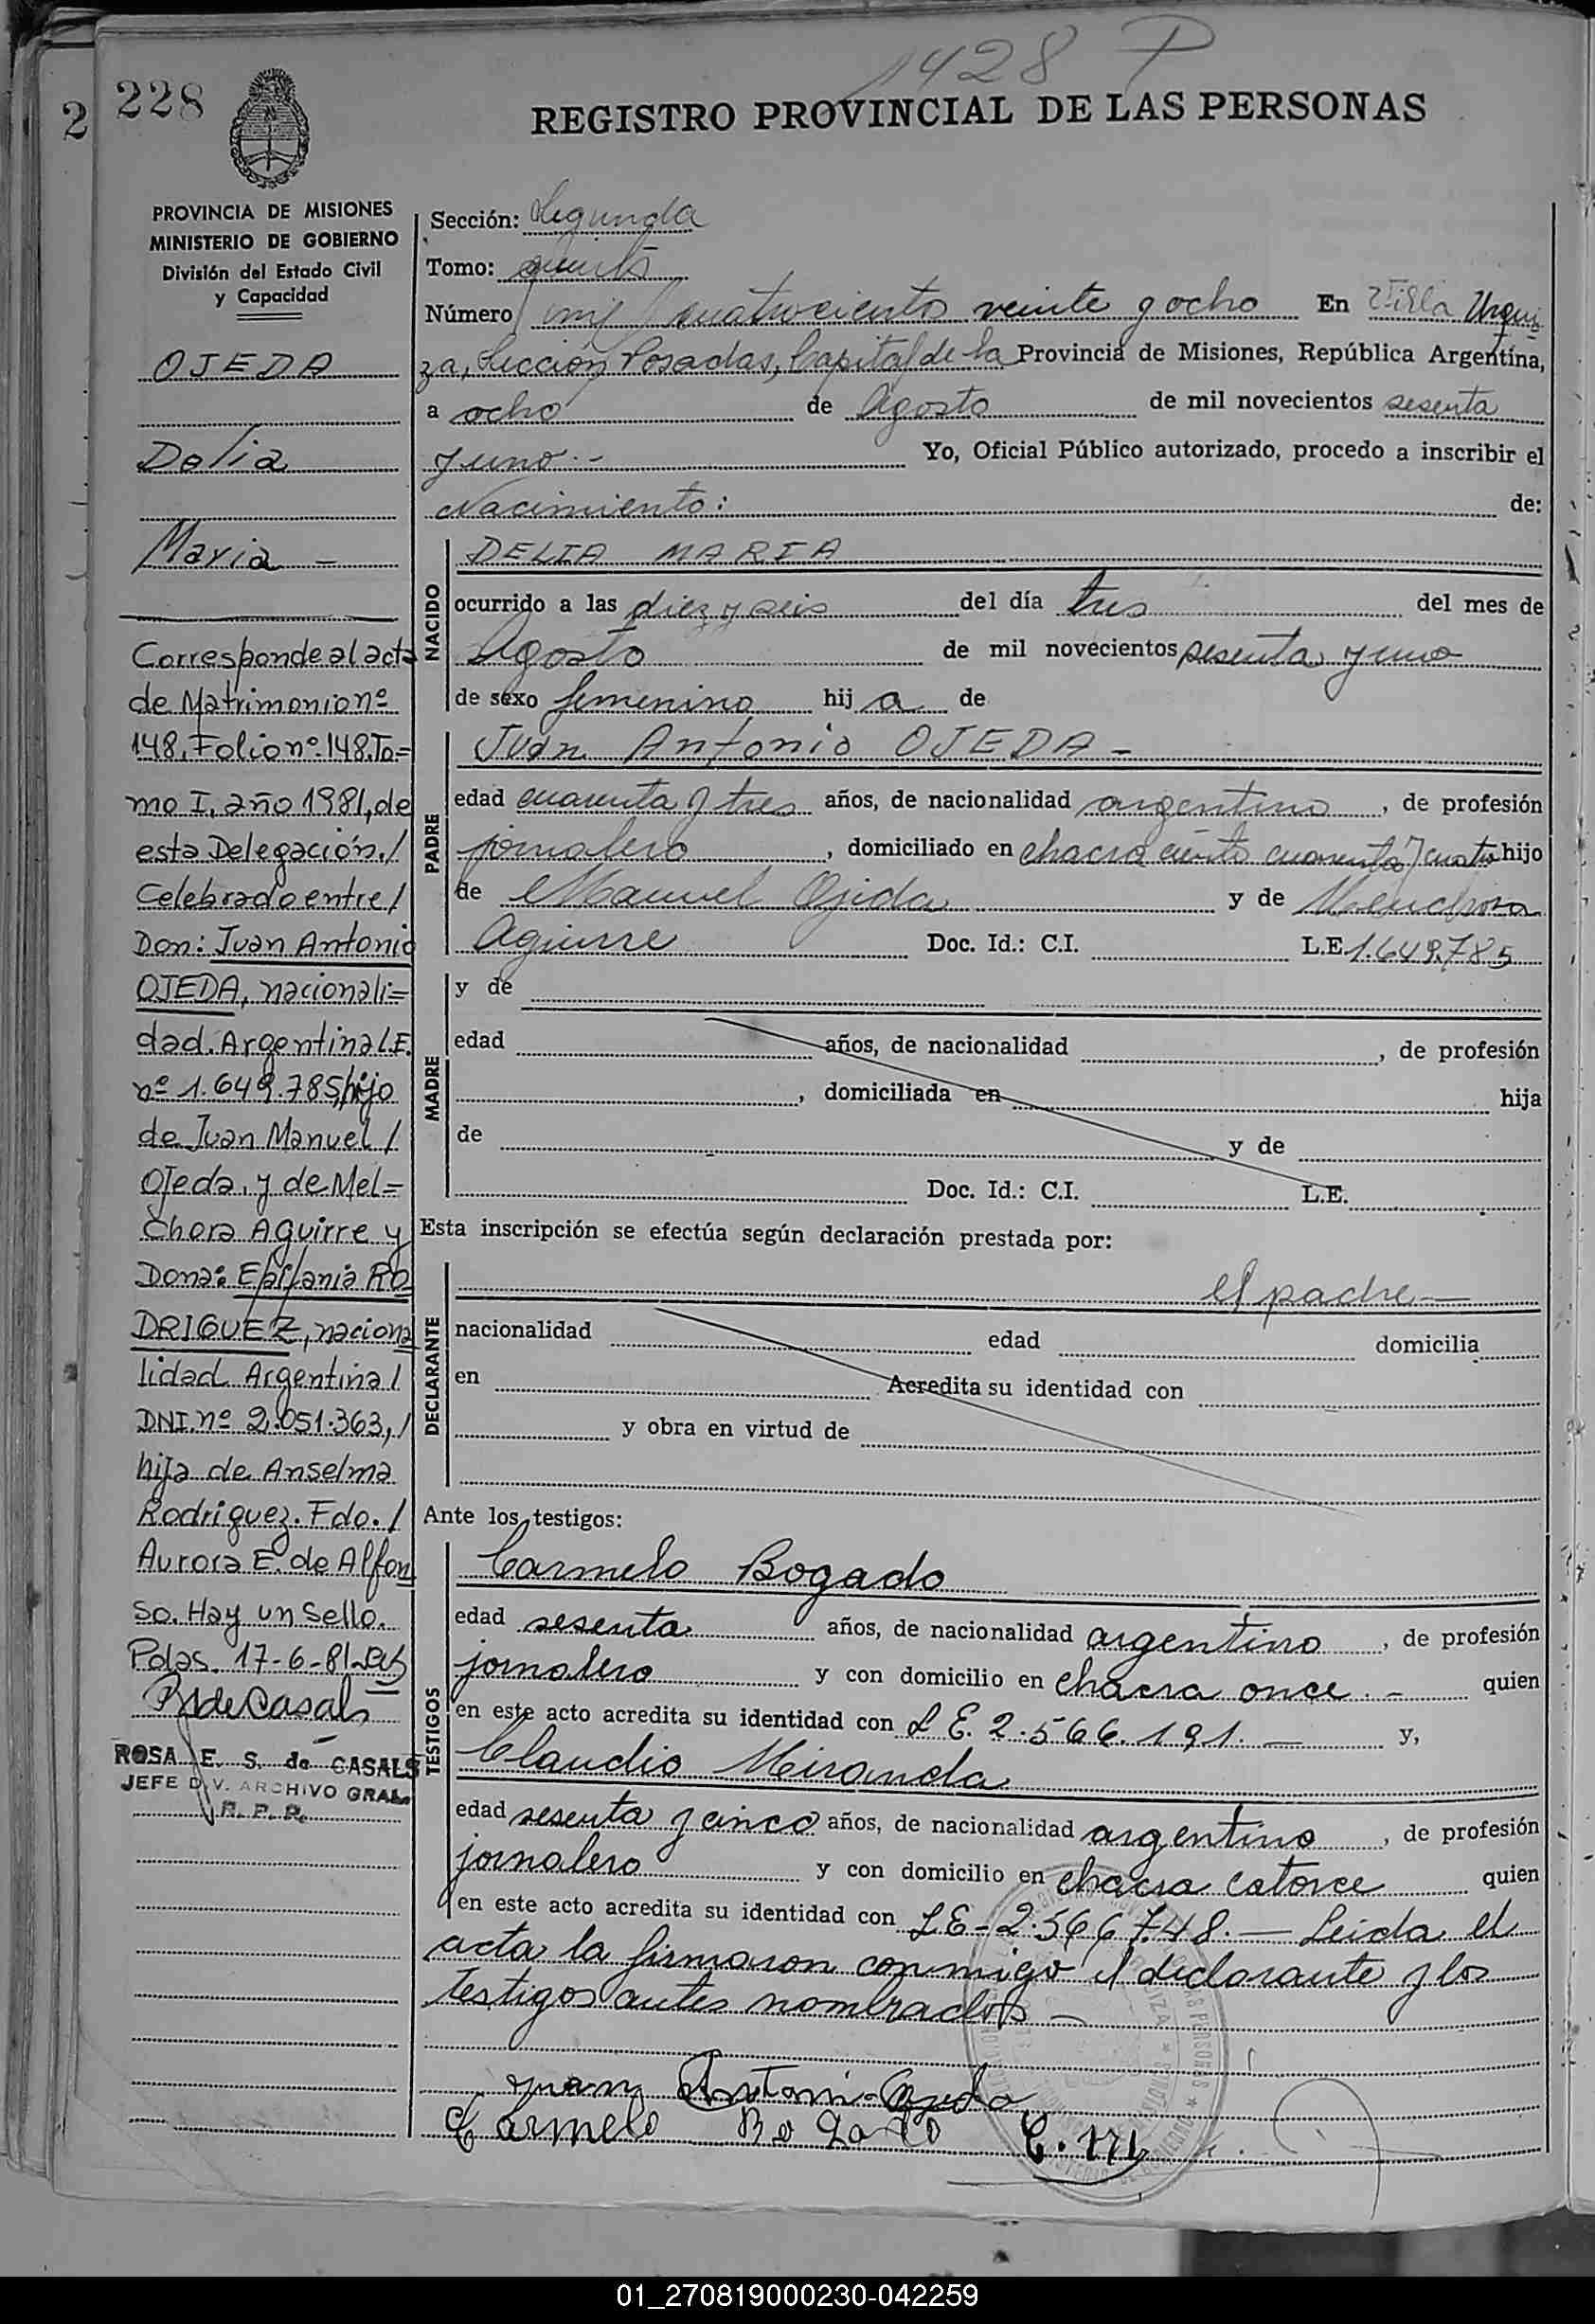 1428 P
2
228
REGISTRO PROVINCIAL DE LAS PERSONAS
PROVINCIA DE MISIONES
MINISTERIO DE GOBIERNO
División del Estado Civil
y Capacidad
OJEDA
Delia
Maria -
Corresponde al acta
de Matrimonio nº
148, Folio nº 148, To=
mo I, año 1981, de
esta Delegación./
Celebrado entre/
Don: Juan Antonio
OJEDA, nacionali=
dad. Argentina L.E.
nº 1.649.785, hijo
de Juan Manuel /
Ojeda, y de Mel=
chora Aguirre y
Dona: Epifania RO
DRIGUEZ, naciona
lidad Argentina /
DNI. nº 2.051.363, /
hija de Anselma
Rodriguez. Fdo. /
Aurora E. de Alfon
so. Hay un Sello.
Pdas. 17-6-81
RdeCasals
ROSA E. S. de CASALS
JEFE DIV. ARCHIVO GRAL.
R. P. P.
Sección: Segunda
Tomo: quinto
Número mil cuatrocientos veinte y ocho En Villa Urqui
za, Sección Posadas, Capital de la Provincia de Misiones, República Argentina,
a ocho de Agosto de mil novecientos sesenta
y uno.- Yo, Oficial Público autorizado, procedo a inscribir el
Nacimiento: de:
NACIDO
DELIA MARIA
ocurrido a las diez y seis del día tres del mes de
Agosto de mil novecientos sesenta y uno
de sexo femenino hij a de
PADRE
Juan Antonio OJEDA -
edad cuarenta y tres años, de nacionalidad argentino, de profesión
jornalero, domiciliado en chacra ciento cuarenta y cuatro hijo
de Manuel Ojeda y de
Aguirre Doc. Id.: C.I. L.E. 1.649.785
MADRE
y de
edad años, de nacionalidad , de profesión
, domiciliada en hija
de y de
Doc. Id.: C.I. L.E.
Esta inscripción se efectúa según declaración prestada por:
DECLARANTE
el padre—
nacionalidad edad domicilia
en Acredita su identidad con
y obra en virtud de
Ante los testigos:
TESTIGOS
Carmelo Bogado
edad sesenta años, de nacionalidad argentino, de profesión
jornalero y con domicilio en chacra once.- quien
en este acto acredita su identidad con L E. 2.566.191.— y,
Claudio Miranda
edad sesenta y cinco años, de nacionalidad argentino, de profesión
jornalero y con domicilio en chacra catorce quien
en este acto acredita su identidad con L.E- 2.566.748.— Leida el
acta la firmaron conmigo el declarante y los
testigos antes nombrados —
Juan Antoni Ojeda
Carmelo Bogado C.
01_270819000230-042259